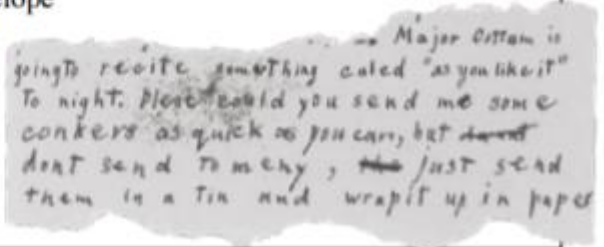 elope
... Major Cottam is
going to recite something called "as you like it"
To night. Plese could you send me some
conkers as quick as you can, but
dont send to meny, the just send
them in a Tin and wrap it up in paper